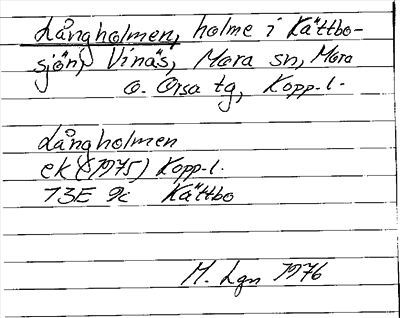 Långholmen, holme i Kättbo-
sjön, Vinäs, Mora sn, Mora
o. Orsa tg, Kopp. l.
Långholmen
ek (1975) Kopp. l.
13E 9c Kättbo
M. Lgn 1976